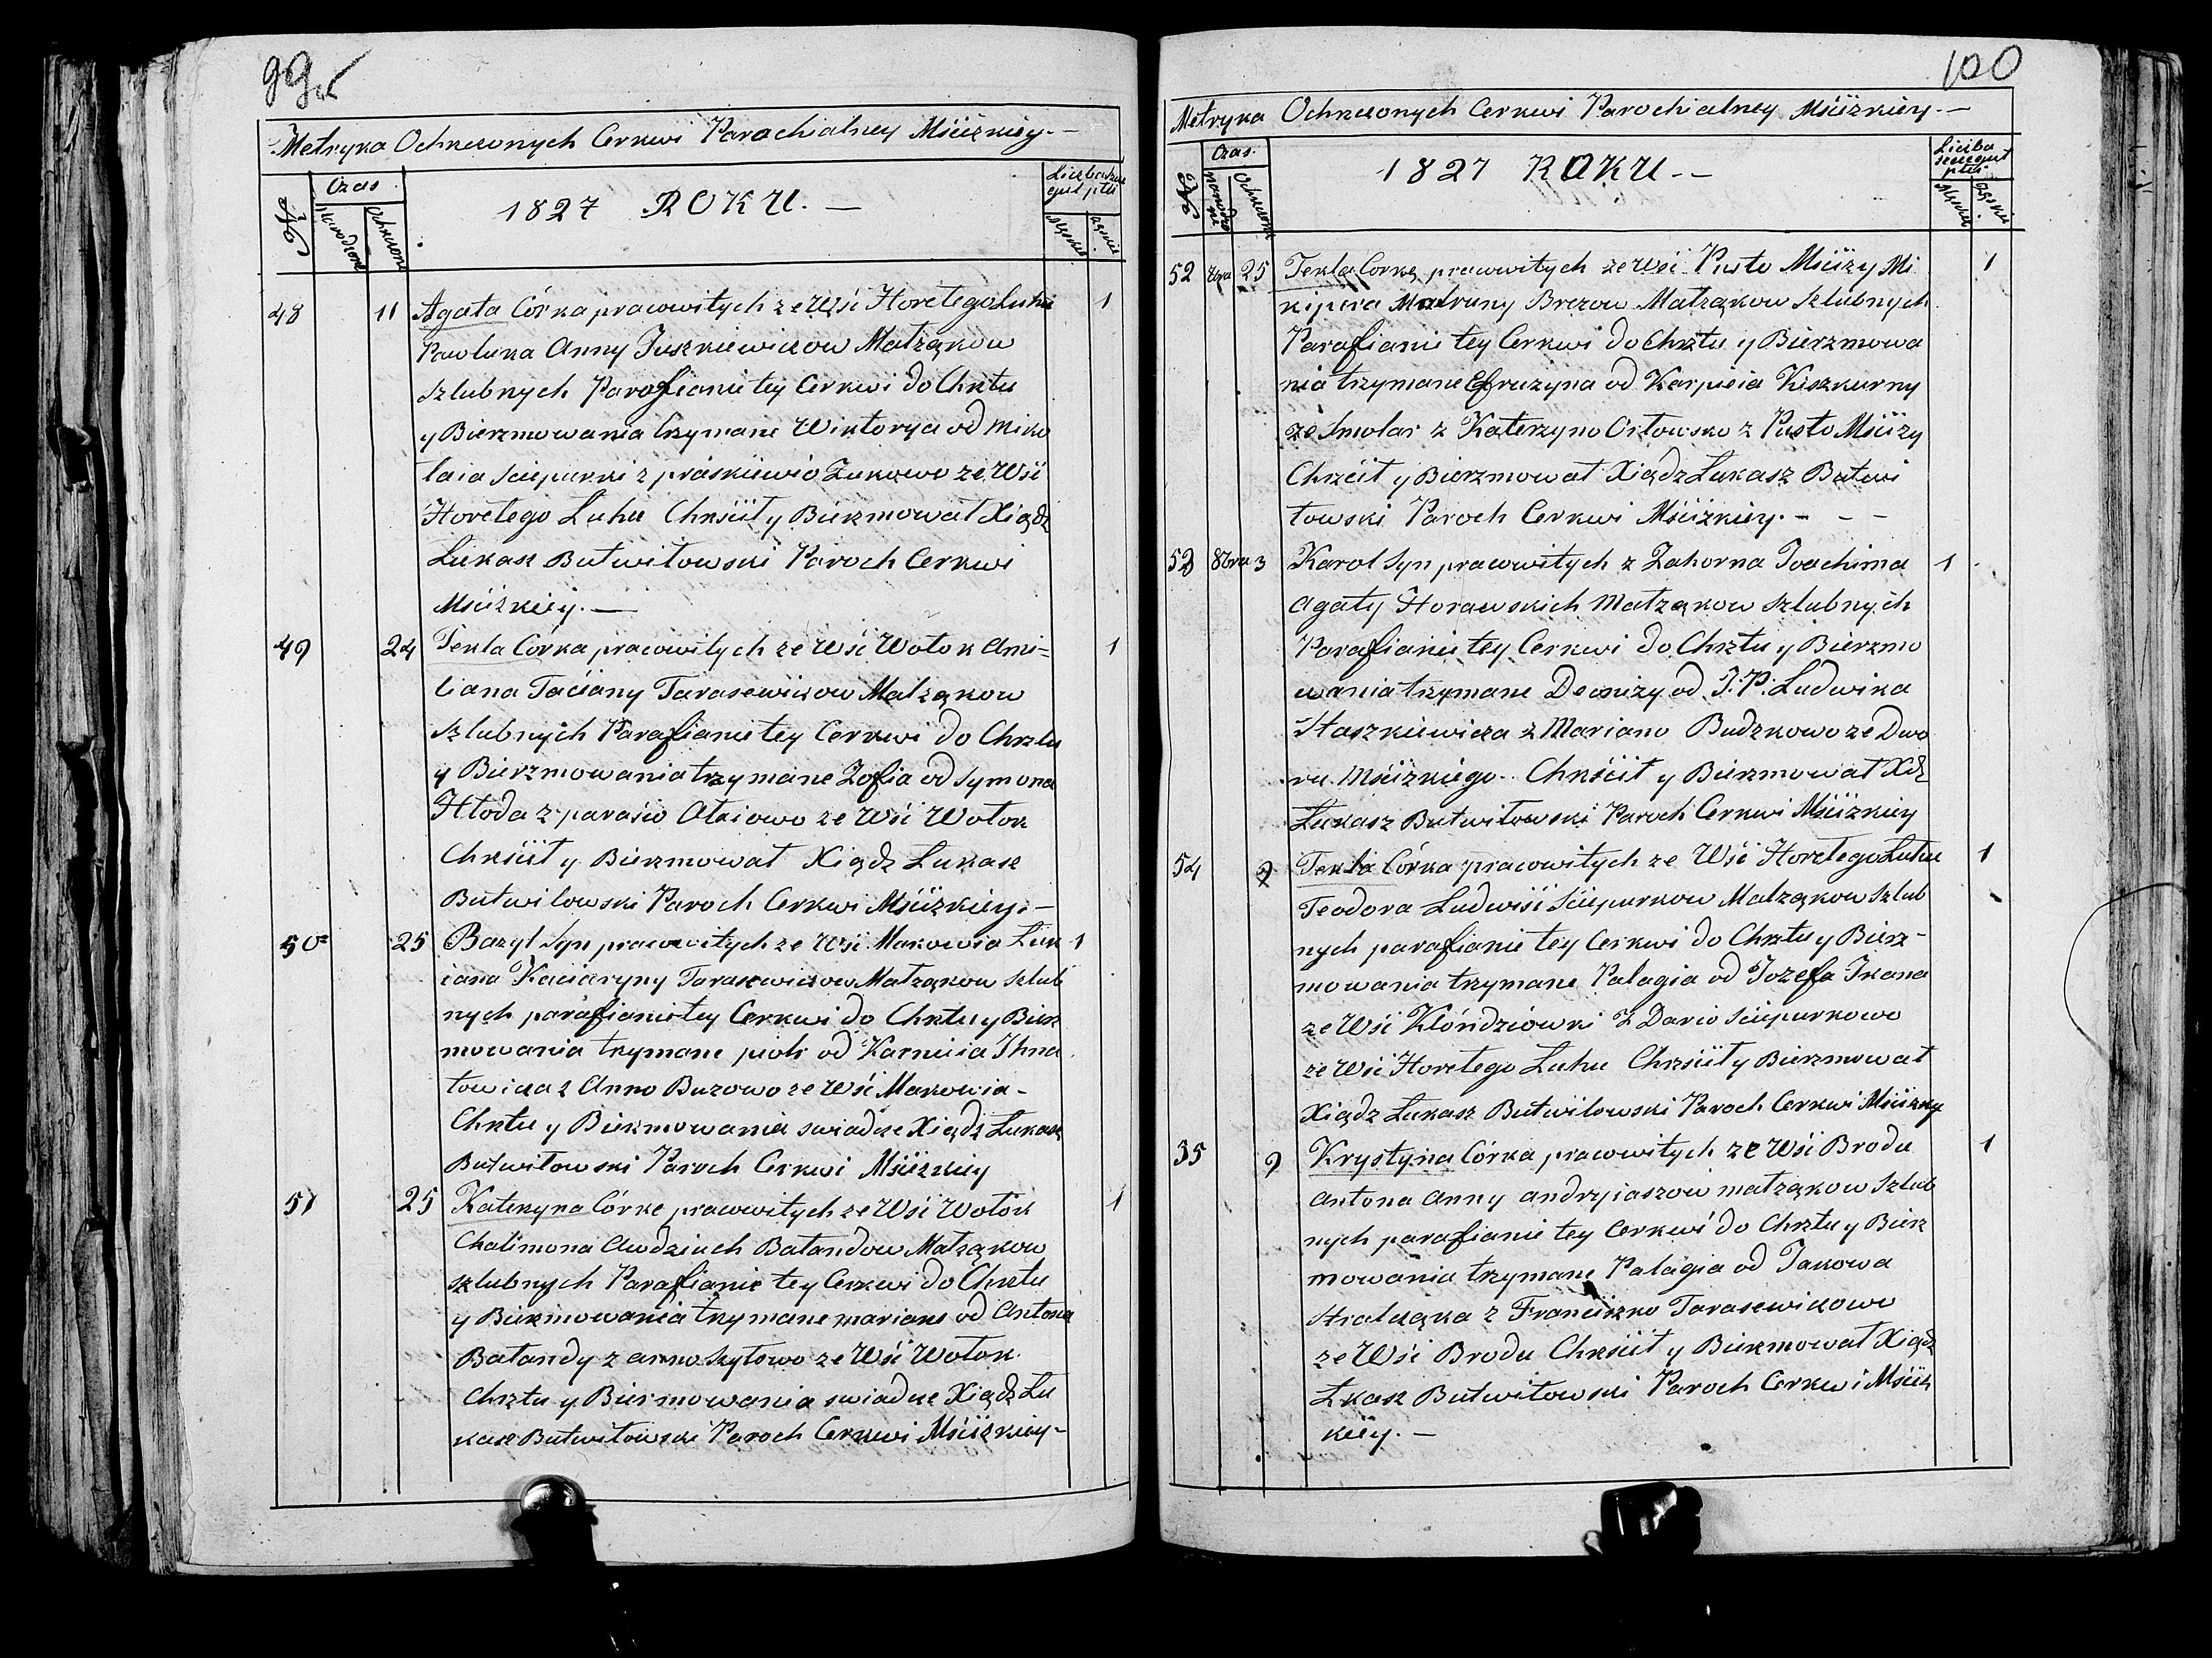 99
Metryka Ochrzczonych Cerkwi Parochialney Mściżkiey. —
№ Czas Liczba szczegul płci
Narodzenie Ochrzczone 1827 ROKU. — Męskiej Żęskiej
48 11 Agata Córka pracowitych ze Wśi Horełego Luhu 1
Pawluka Anny Juszkiewiczow Małżąkow
szlubnych Parafianie tey Cerkwi do Chrztu
y Bierzmowania trzymane Wiktorya od Miko
laia Sciepurki z praskiewio Zukowo ze Wśi
Horełego Luhu Chrśćił y Bierzmował Xiądz
Lukasz Butwiłowski Paroch Cerkwi
Mściżkiey. —
49 24 Tekla Córka pracowitych ze Wśi Wołok Ami=
liana Taciany Tarasewiczow Małżąkow
szlubnych Parafianie tey Cerkwi do Chrztu
y Bierzmowania trzymane Zofia od Symona
Hłoda z parasio Ataiowo ze Wśi Wołok
Chrśćił y Bierzmował Xiądz Lukasz
Butwilowski Paroch Cerkwi Mściżkiey. —
50 25 Bazyl Syn pracowitych ze Wśi Makowia Luk 1
iana Kaciaryny Tarasewiczow Małżąkow szlub
nych parafianie tey Cerkwi do Chrztu y Bierz
mowania trzymane piotr od Karnieia Ihna
towicza z Anno Buzowo ze Wśi Makowia -
Chrztu y Bierzmowania swiadcze Xiądz Lukasz
Butwiłowski Paroch Cerkwi Mściżkiey
51 25 Katerzyna Córke pracowitych ze Wśi Wołok 1
Chalimona Awdziuch Bałandow Małżąkow
szlubnych Parafianie tey Cerkwi do Chrztu
y Bierzmowania trzymane mariane od Antona
Bałandy z anno Szyłowo ze Wśi Wołok.
Chrztu y Bierzmowania swiadcze Xiądz Lu
kasz Butwiłowski Paroch Cerkwi Mściżkiey -
100
Metryka Ochrzczonych Cerkwi Parochialney Mściżkiey. —
№ Czas. Liczba szczegul płci
Narodzenie Ochrzczone 1827 ROKU. -- Męskiej Żęskiej
52 7bra 25 Tekla Corką pracowitych ze Wśi Pusto Mściży Mi 1
kipera Matruny Brezow Małżąkow szlubnych
Parafianie tey Cerkwi do Chrztu y Bierzmowa
nia trzymane Efruzyna od Karpieia Kiszkurny
ze Smolar z Katerzyno Orłowsko z Pusto Mściży
Chrzćił y Bierzmował Xiądz Lukasz Butwi
łowski Paroch Cerkwi Mściżkiey. - - -
53 8bra 3 Karol Syn pracowitych z Zahorna Joachima 1
Agaty Horawskich Małżąkow szlubnych
Parafianie tey Cerkwi do Chrztu y Bierzmo
wania trzymane Deonizy od J: P: Ludwika
Staszkiewicza z Mariano Budzkowo ze Dwo
ru Mściżkiego. Chrśćił y Bierzmował Xdz
Lukasz Butwiłowski Paroch Cerkwi Mściżkiey
54 9 Tekla Córka pracowitych ze Wśi Horełego Luhu 1
Teodora Ludwiśi Sciepurkow Małżąkow szlub
nych parafianie tey Cerkwi do Chrztu y Bierz-
mowania trzymane Palagia od Jozefa Ikana
ze Wśi Klóńdziowki z Dario Sciepurkowo
ze Wśi Horełego Luhu Chrśćił y Bierzmował
Xiądz Lukasz Butwiłowski Paroch Cerkwi Mściżkiy
35 9 Krystyna Córka pracowitych ze Wśi Brodu 1
Antona Anny andryiaszow małżąkow szlub
nych parafianie tey Cerkwi do Chrztu y Bierz
mowania trzymane Palagia od Jakowa
z Franciszko Tarasewiczowo
ze Wśi Brodu Chrśćił y Bierzmował Xiądz
Lkasz Butwiłowski Paroch Cerkwi Mściż
kiey. —